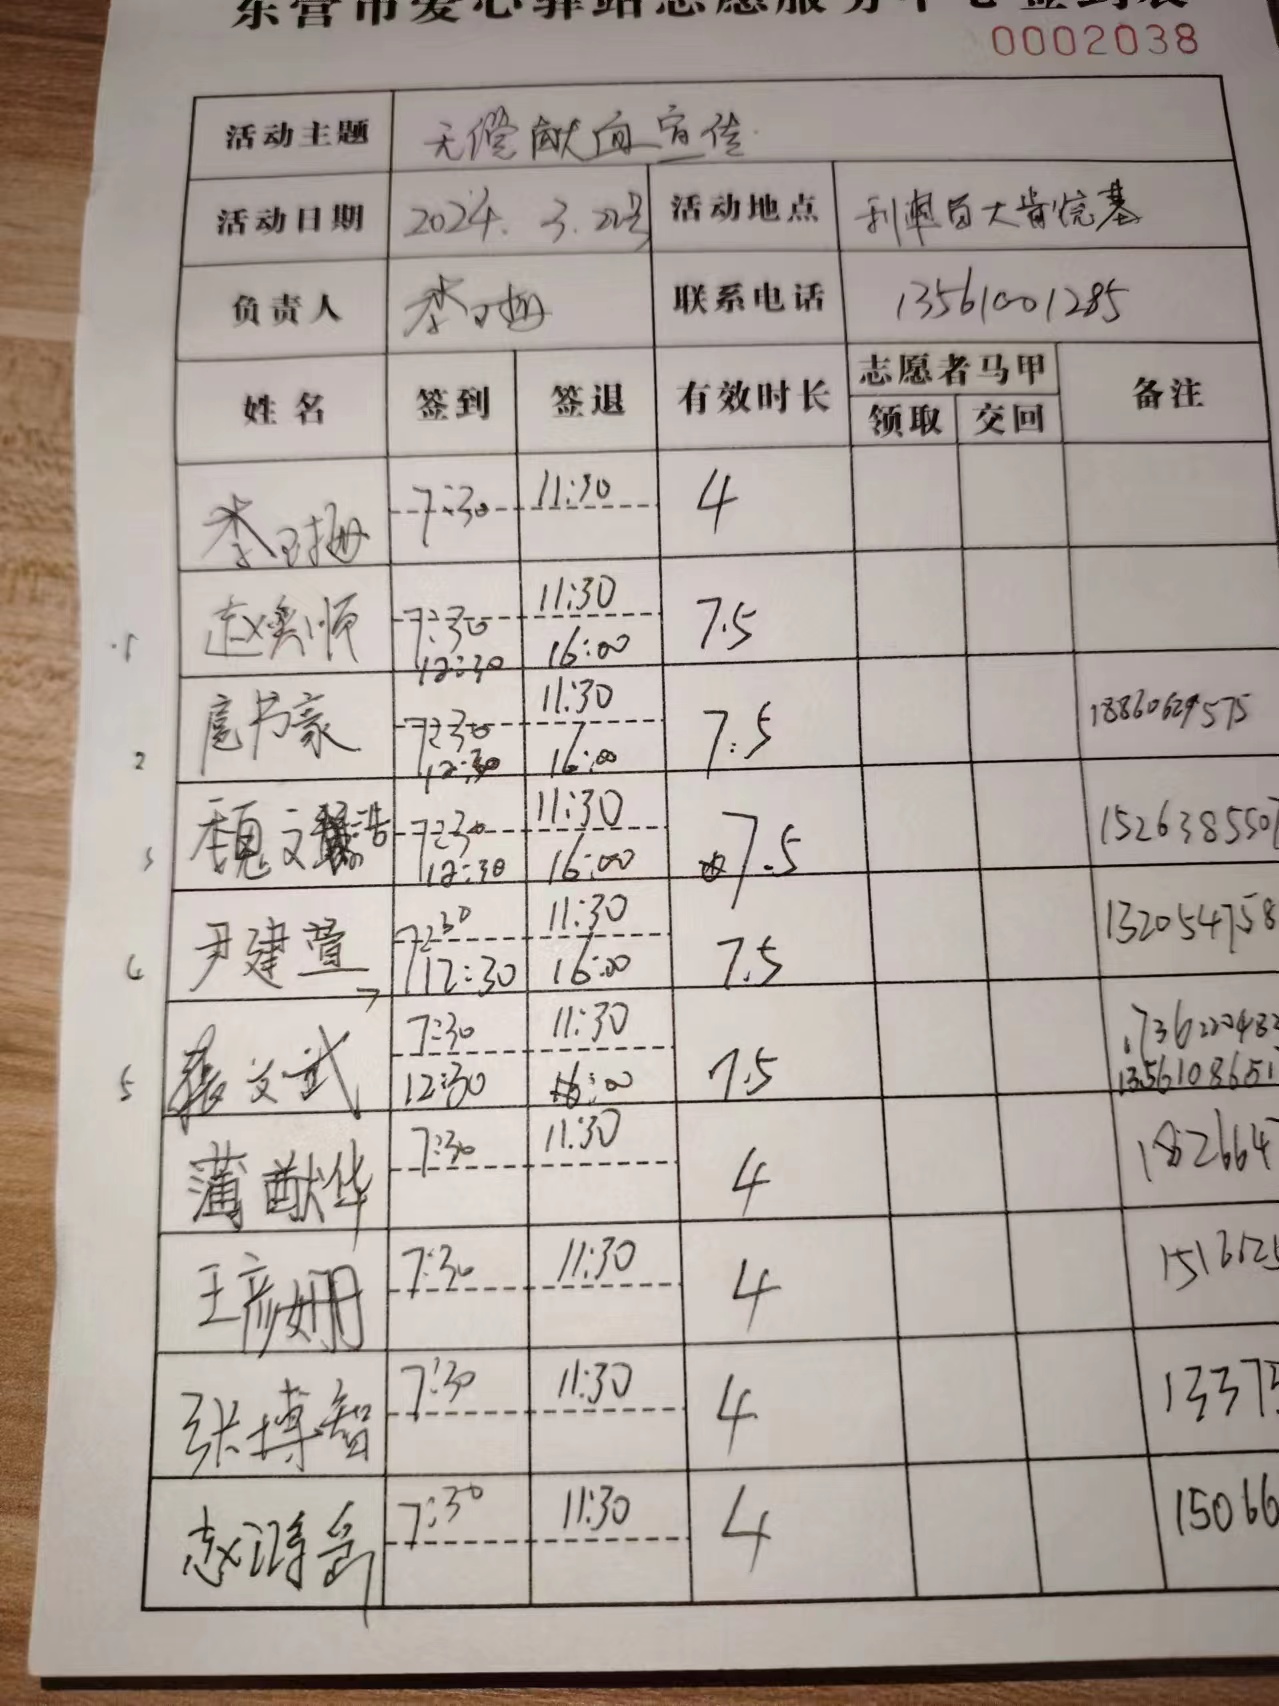 东营市爱心驿站志愿服务中心签到表
0002038
活动主题 无偿献血宣传
活动日期 2024. 3. 活动地点 利津百大肯德基
负责人 李 梅 联系电话 13561001285
姓名 签到 签退 有效时长 志愿者马甲 备注
领取 交回
李 梅 7:30 11:30 4
1 赵奕顺 7:30 11:30 7.5
12:30 16:00
2 扈书豪 7:30 11:30 7.5 18860629575
12:30 16:00
3 魏文浩 7:30 11:30 7.5 1526385507
12:30 16:00
4 尹建萱 7:30 11:30 7.5 132054758
12:30 16:00
5 文武 7:30 11:30 7.5 1736220482
12:30 16:00 1356108651
蒲猷华 7:30 11:30 4 1826647
王彦姗 7:30 11:30 4 1513625
张博智 7:30 11:30 4 13375
赵鸿 7:30 11:30 4 15066